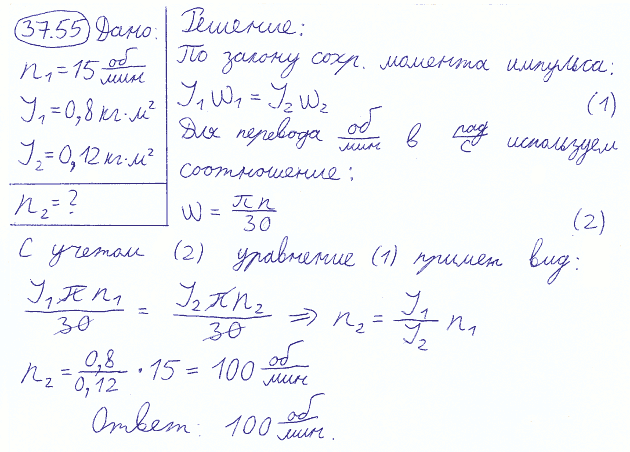 37.55 Дано:
n₁ = 15 об/мин
J₁ = 0,8 кг·м²
J₂ = 0,12 кг·м²
n₂ = ?
Решение:
По закону сохр. момента импульса:
J₁ω₁ = J₂ω₂ (1)
Для перевода об/мин в рад/с используем
соотношение:
ω = πn/30 (2)
С учетом (2) уравнение (1) примет вид:
J₁πn₁/30 = J₂πn₂/30 ⇒ n₂ = J₁/J₂ n₁
n₂ = 0,8/0,12 · 15 = 100 об/мин
Ответ: 100 об/мин.